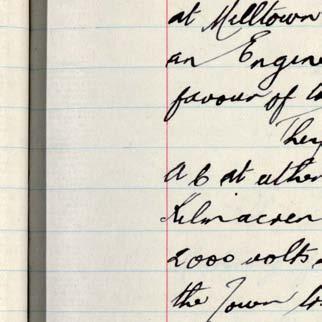 at Milltown
an Engine
favour of
They
A C at uther
Kilmacren
2000 volts
the Town